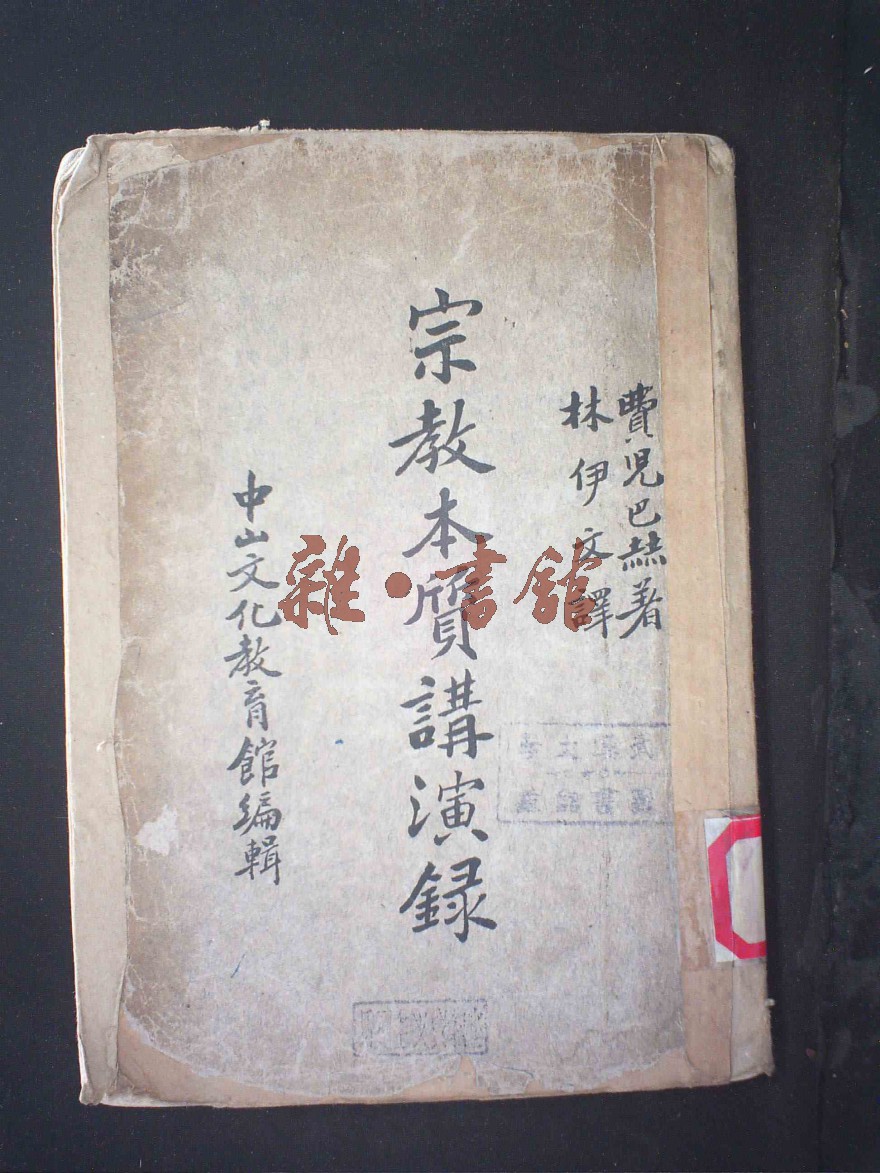 費兒巴赫著
林伊文譯
宗教本質講演録
中山文化教育館編輯
雜·書館